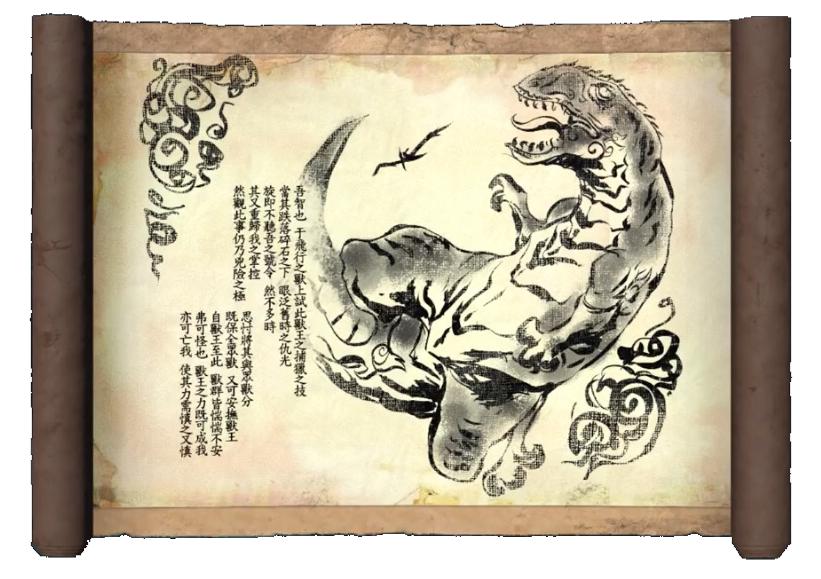 吾智也 于飛行之獸上試此獸王之捕獵之技
當其跌落碎石之下 眼泛舊時之仇光
旋即不聽吾之號令 然不多時
其又重歸我之掌控
然觀此事仍乃兇險之極
思忖將其與眾獸分
既保全眾獸 又可安撫獸王
自獸王至此 獸群皆惴惴不安
弗可怪也 獸王之力既可成我
亦可亡我 使其力需慎之又慎